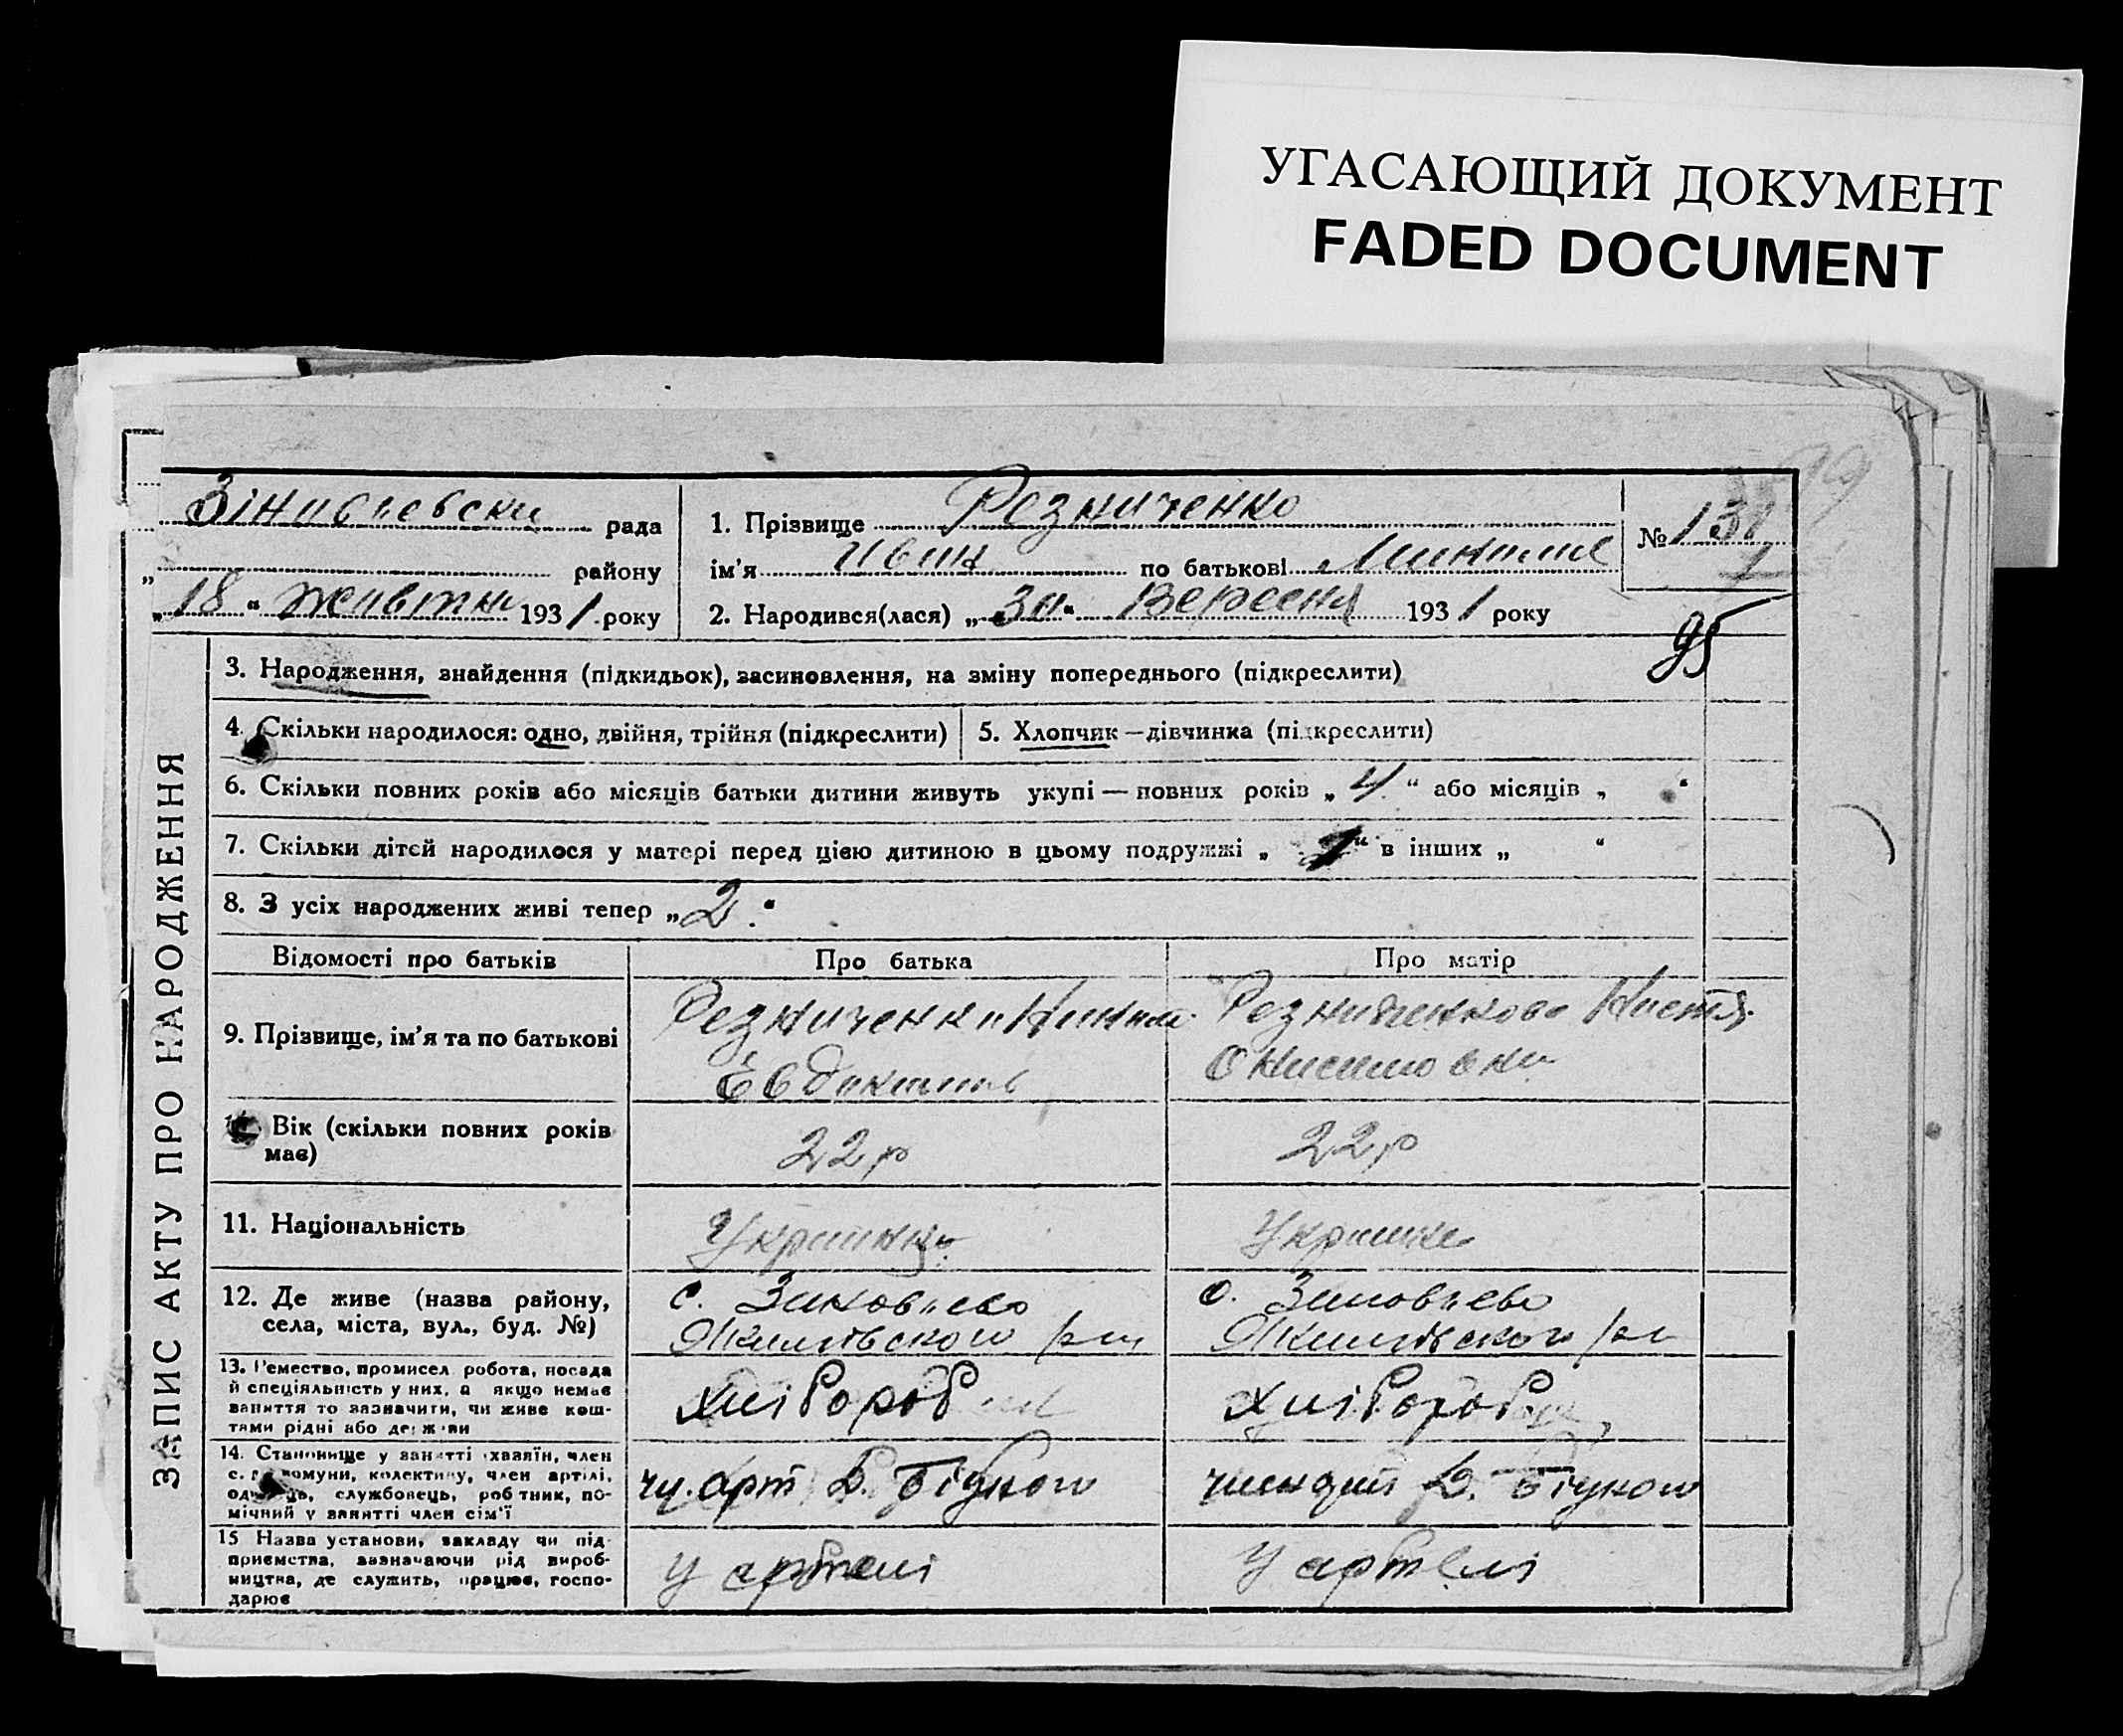 УГАСАЮЩИЙ ДОКУМЕНТ
FADED DOCUMENT
ЗАПИС АКТУ ПРО НАРОДЖЕННЯ
рада
району
„18“ Жовтня 1931 року
1. Прізвище Резниченко
ім'я Иван по батькові
2. Народився(лася) „30“ Вересня 1931 року
№ 131
1
95
3. Народження, знайдення (підкидьок), засиновлення, на зміну попереднього (підкреслити)
4. Скільки народилося: одно, двійня, трійня (підкреслити)
5. Хлопчик—дівчинка (підкреслити)
6. Скільки повних років або місяців батьки дитини живуть укупі — повних років „4“ або місяців „ “
7. Скільки дітей народилося у матері перед цією дитиною в цьому подружжі „ “ в інших „ “
8. З усіх народжених живі тепер „2.“
Відомості про батьків
Про батька
Про матір
9. Прізвище, ім'я та по батькові
Резниченко
Настя
Онисимовна
Вік (скільки повних років має)
22 р
22 р
11. Національність
Українець
Українка
12. Де живе (назва району, села, міста, вул., буд. №)
с. Зиновьево
с. Зиновьево
13. Ремество, промисел робота, носада й спеціяльність у них, а якщо немає заняття то зазначити, чи живе коштами рідні або держави
Хлібороб
Хлібороб
14. Становище у занятті (хазяїн, член с.г. комуни, колективу, член артілі, одинець, службовець, робітник, помічний у занятті член сім'ї
чл. арт Д. Бідного
член арт Д. Бідного
15 Назва установи, закладу чи підприємства, зазначаючи рід виробництва, де служить, працює, господарює
У артелі
У артелі